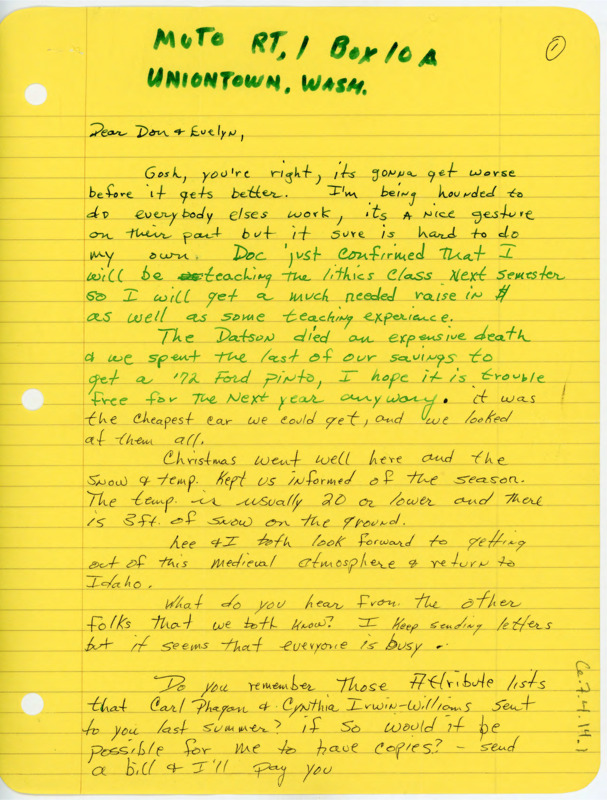 MUTO RT, 1 BOX 10 A
UNIONTOWN, WASH.
1
Dear Don & Evelyn,
Gosh, you're right, its gonna get worse
before it gets better. I'm being hounded to
do everybody elses work, its a nice gesture
on their part but it sure is hard to do
my own. Doc just confirmed that I
will be teaching the lithics class next semester
so I will get a much needed raise in $
as well as some teaching experience.
The Datson died an expensive death
& we spent the last of our savings to
get a '72 Ford Pinto, I hope it is trouble
free for the next year anyway. it was
the cheapest car we could get, and we looked
at them all.
Christmas went well here and the
snow & temp. kept us informed of the season.
The temp. is usually 20 or lower and there
is 3ft. of snow on the ground.
Lee & I both look forward to getting
out of this medieval atmosphere & return to
Idaho.
What do you hear from the other
folks that we both know? I keep sending letters
but it seems that everyone is busy.
Do you remember those Attribute lists
that Carl Phagan & Cynthia Irwin-Williams sent
to you last summer? if so would it be
possible for me to have copies? - send
a bill & I'll pay you
Ce.7.4.14.1